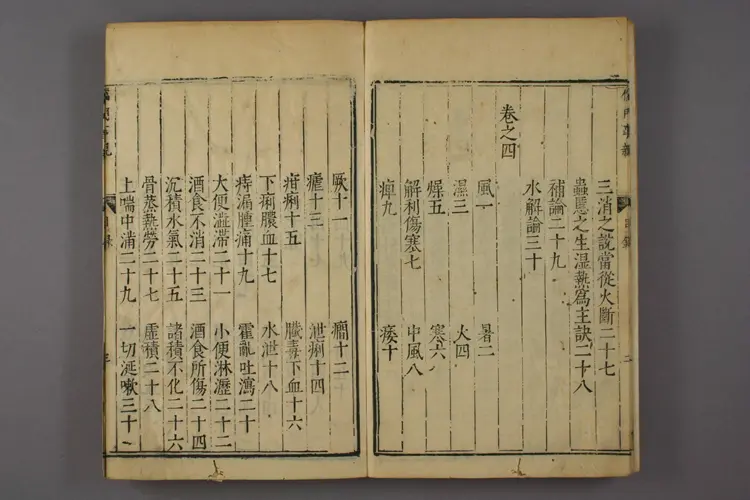 三消之說當從火斷二十七
蟲䘌之生濕熱爲主訣二十八
補論二十九
水解論三十
卷之四
風一 暑二
濕三 火四
燥五 寒六
解利傷寒七 中風八
痺九 痿十
厥十一 癎十二
瘧十三 泄痢十四
疳痢十五 臟毒下血十六
下痢膿血十七 水泄十八
痔漏腫痛十九 霍亂吐瀉二十
大便澁滯二十一 小便淋瀝二十二
酒食不消二十三 酒食所傷二十四
沉積水氣二十五 諸積不化二十六
骨蒸熱勞二十七 虛積二十八
上喘中滿二十九 一切涎嗽三十
目錄
三